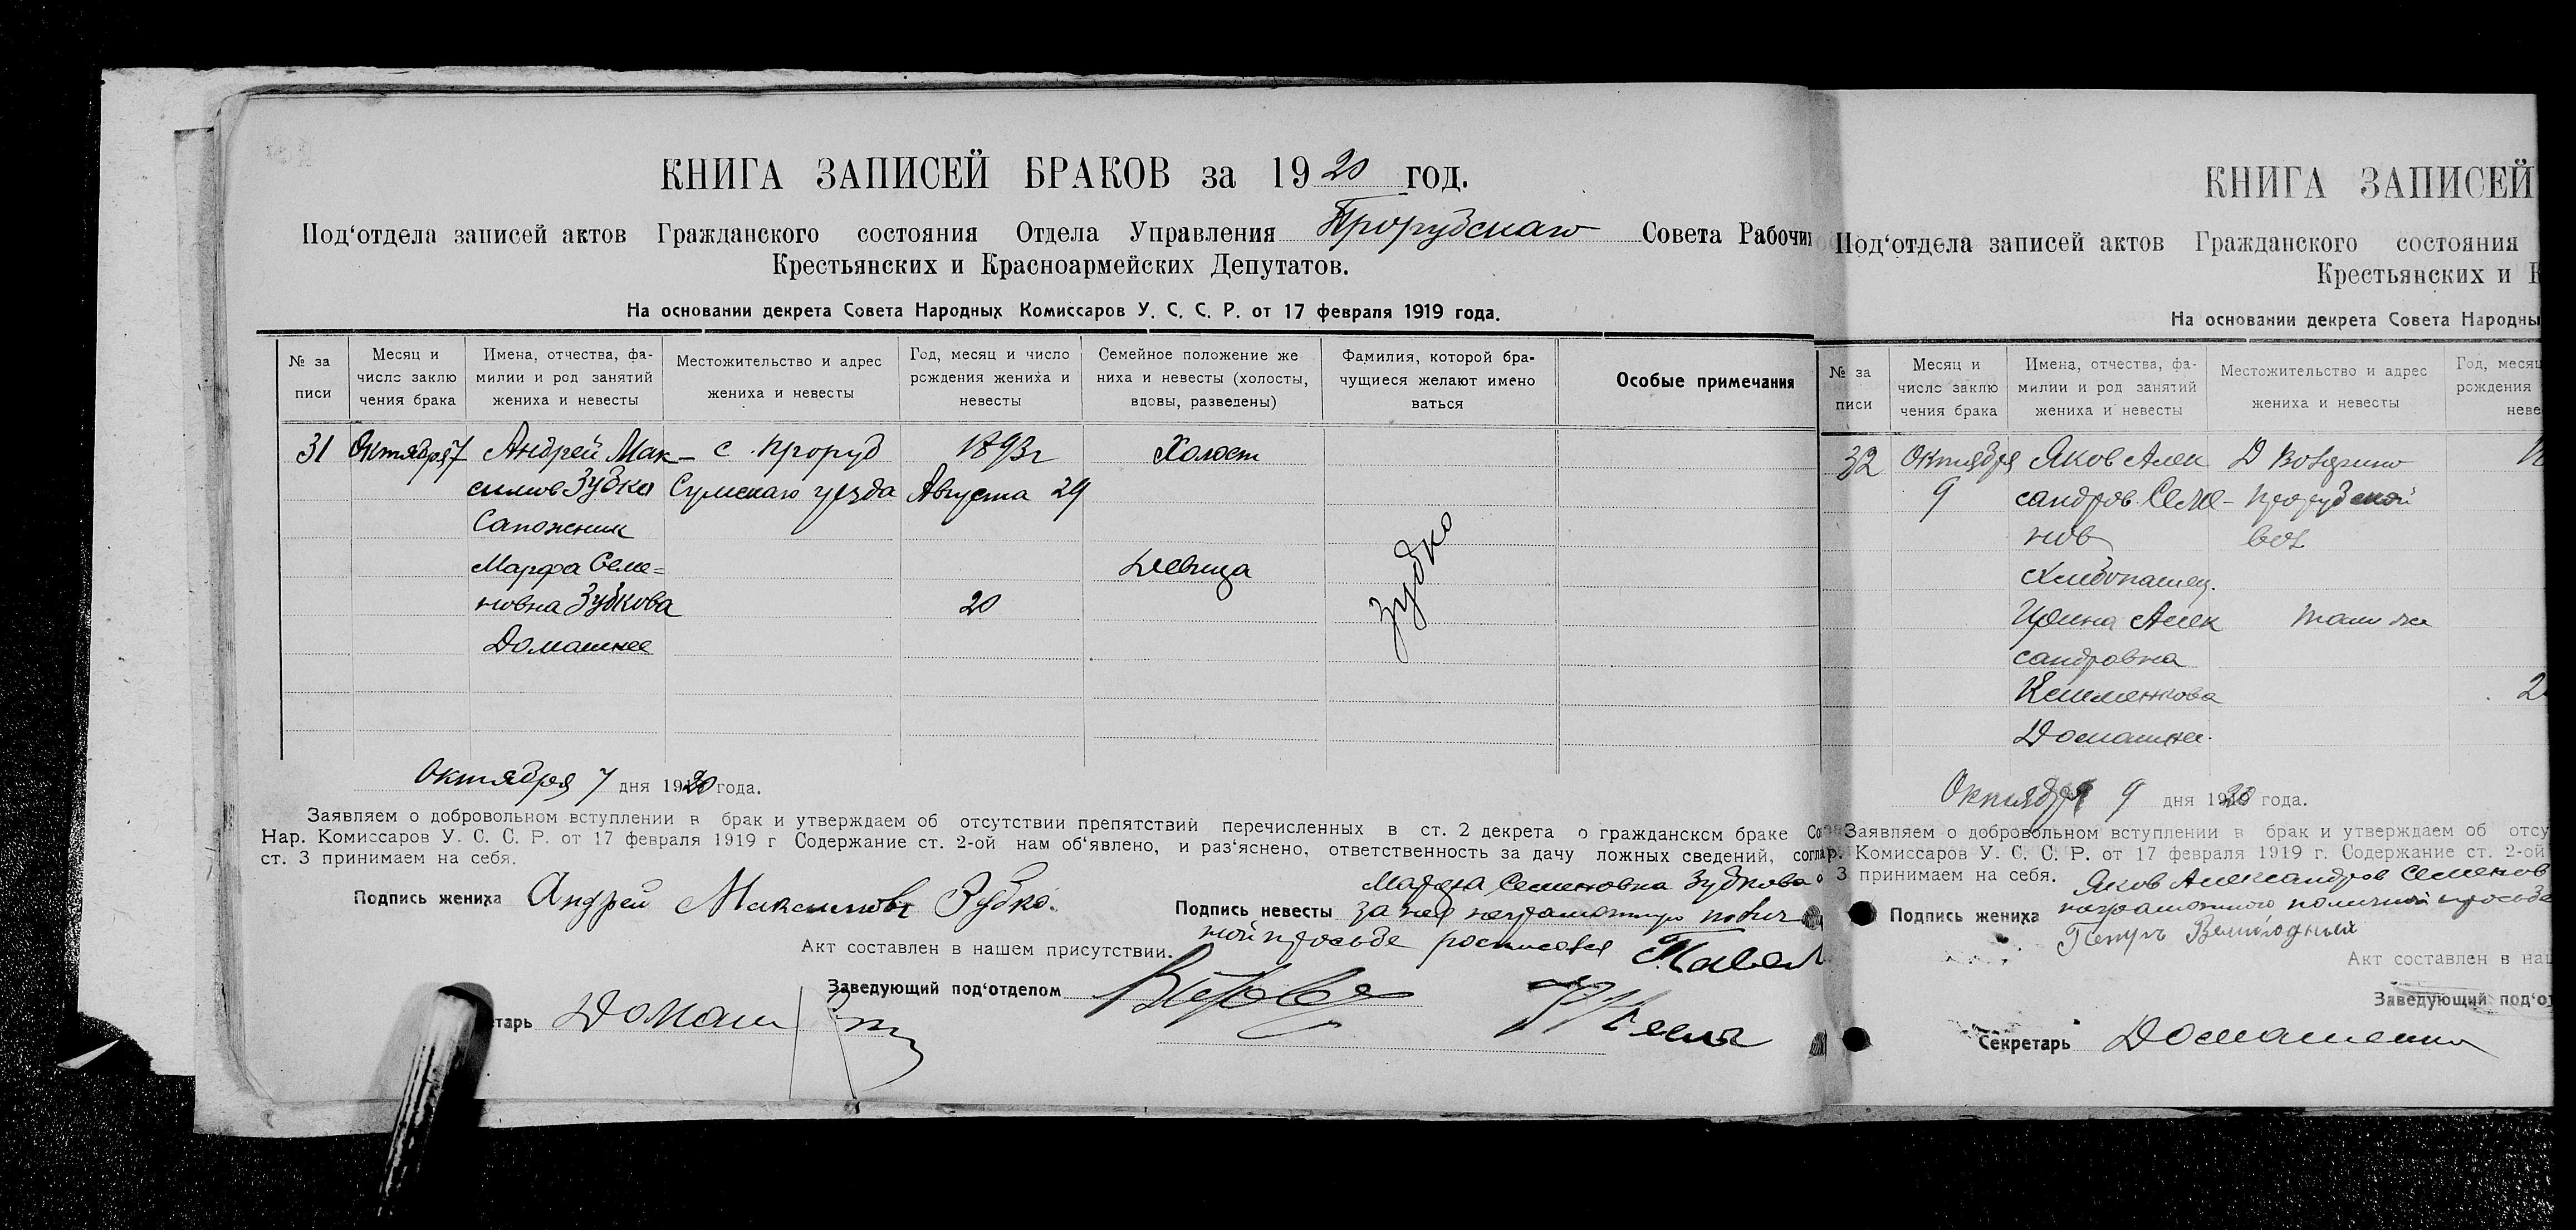 КНИГА ЗАПИСЕЙ БРАКОВ за 1920 год.
Под‘отдела записей актов Гражданского состояния Отдела Управления Прорубскаго Совета Рабочи
Крестьянских и Красноармейских Депутатов.
На основании декрета Совета Народных Комиссаров У. С. С. Р. от 17 февраля 1919 года.
№ за писи
Месяц и число заклю чения брака
Имена, отчества, фа- милии и род занятий жениха и невесты
Местожительство и адрес жениха и невесты
Год, месяц и число рождения жениха и невесты
Семейное положение же ниха и невесты (холосты, вдовы, разведены)
Фамилия, которой бра- чущиеся желают имено ваться
Особые примечания
31 Октября 7 Андрей Мак- с. Проруб 1893 г Холост
симов Зубко Сумскаго уезда Августа 29
Сапожник
Марфа Семе= Девица
новна Зубкова 20
Домашнее
Зубко
Октября 7 дня 1920 года.
Заявляем о добровольном вступлении в брак и утверждаем об отсутствии препятствий перечисленных в ст. 2 декрета о гражданском браке Со
Нар. Комиссаров У. С. С. Р. от 17 февраля 1919 г Содержание ст. 2-ой нам об‘явлено, и раз‘яснено, ответственность за дачу ложных сведений, соглa
ст. 3 принимаем на себя.
Подпись жениха Андрей Максимовъ Зубко.
Подпись невесты Марфа Семеновна Зубкова
за нее неграмотную по лич
ной просьбе росписался Павел
Акт составлен в нашем присутствии.
Заведующий под‘отделом
етарь Домаш
КНИГА ЗАПИСЕЙ
Под‘отдела записей актов Гражданского состояния
Крестьянских и К
На основании декрета Совета Народны
№ за писи
Месяц и число заклю чения брака
Имена, отчества, фа- милии и род занятий жениха и невесты
Местожительство и адрес жениха и невесты
Год, месяц рождения неве
32 Октября Яков Алек Д
9 сандров Семе- Прорубской
нов вол
Хлебопашец.
Ирина Алек там же
сандровна
Клименкова 2
Домашнее.
Октября 9 дня 1920 года.
Заявляем о добровольном вступлении в брак и утверждаем об отсу
р. Комиссаров У. С. С. Р. от 17 февраля 1919 г. Содержание ст. 2-ой
3 принимаем на себя.
Подпись жениха Яков Александров Семенов
неграмотного по личной просьбе
Петръ
Акт составлен в на
Заведующий под‘о
Секретарь Домашенко